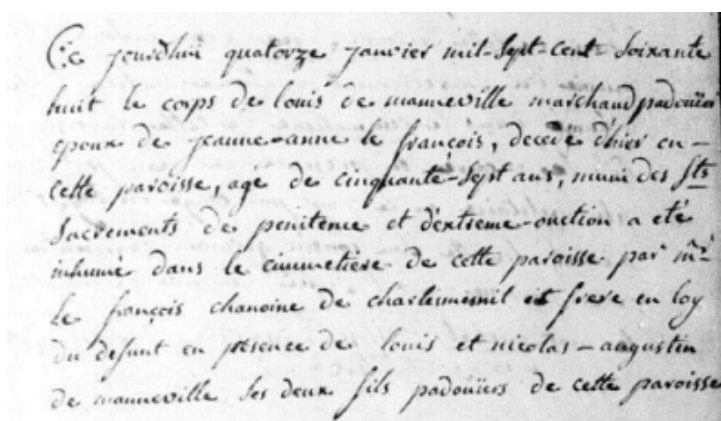 Ce jourdhui quatorze janvier mil-sept-cent-soixante
huit le corps de louis de manneville marchand padoüier
epoux de jeanne-anne le françois, decedé d'hier en
cette paroisse, agé de cinquante-sept ans, muni des sts
sacrements de penitence et d'extreme-onction a eté
inhumé dans le cimmetiere de cette paroisse par mr
le françois chanoine de charlesmesnil et frere en loy
du defunt en presence de louis et nicolas-augustin
de manneville ses deux fils padoüiers de cette paroisse